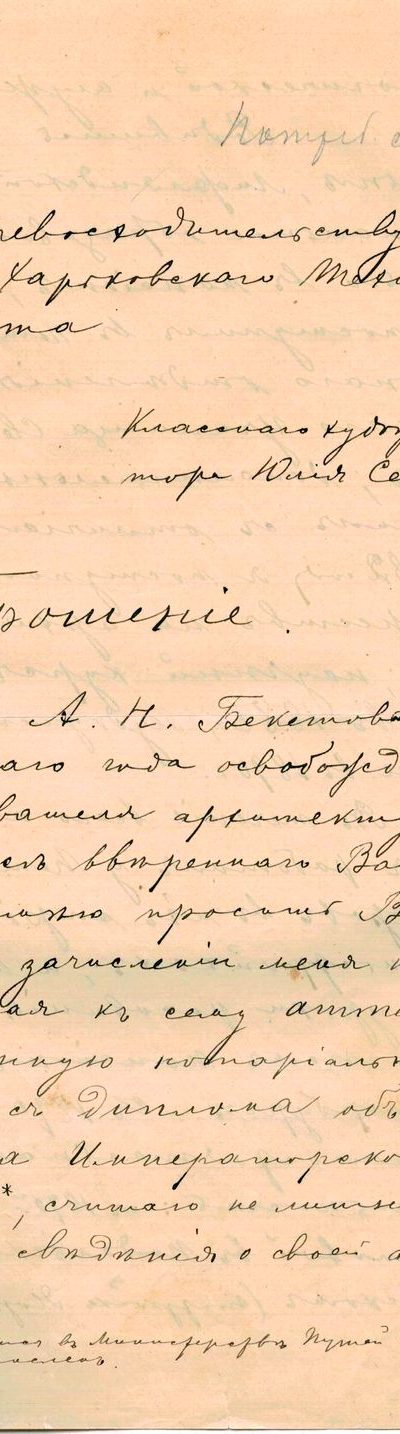 ревосходительству
Харьковскаго Техн
та
Класснаго худож
тора Юлія Се
Прошеніе.
А. Н. Бекетова
аго года освобожд
вателя архитекту
ввѣреннаго Ва
просить В
зачисленіи меня
ая къ сему атте
нную нотаріальн
съ диплома объ
а Императорско
*, считаю не лишн
свѣдѣнія о своей
въ Министерствѣ Путей